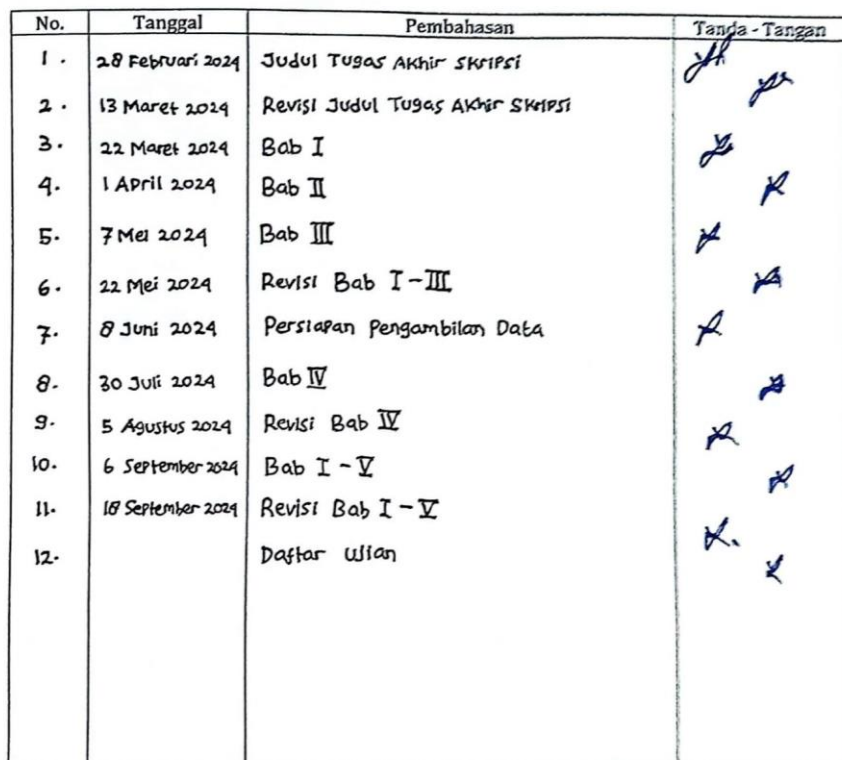 No. Tanggal Pembahasan Tanda - Tangan
1. 28 Februari 2024 Judul Tugas Akhir Skripsi
2. 13 Maret 2024 Revisi Judul Tugas Akhir Skripsi
3. 22 Maret 2024 Bab I
4. 1 April 2024 Bab II
5. 7 Mei 2024 Bab III
6. 22 Mei 2024 Revisi Bab I - III
7. 8 Juni 2024 Persiapan Pengambilan Data
8. 30 Juli 2024 Bab IV
9. 5 Agustus 2024 Revisi Bab IV
10. 6 September 2024 Bab I - V
11. 18 September 2024 Revisi Bab I - V
12. Daftar Ujian